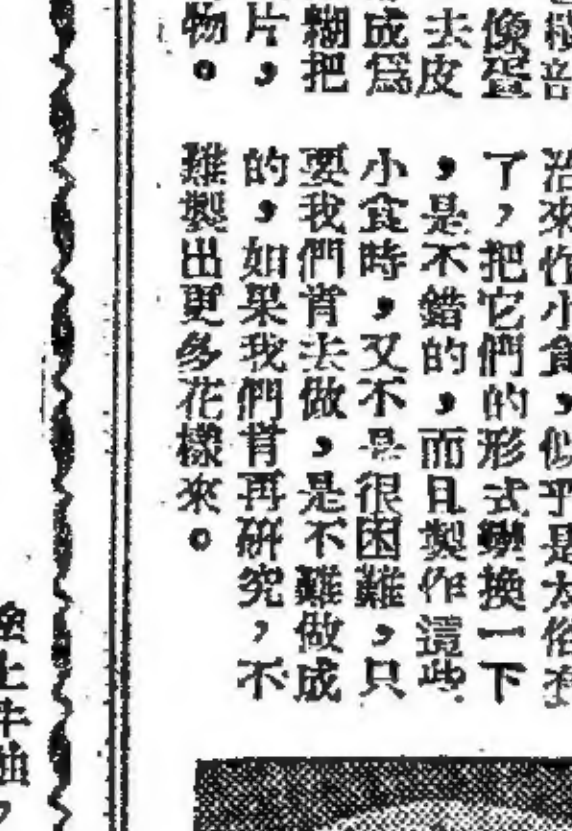 像蛋
去皮
成爲
糊把
片，
物。
來作小食，似乎是太俗
了，把它們的形式變換一下
，是不錯的，而且製作這些
小食時，又不是很困難，只
要我們肯去做，是不難做成
的，如果我們肯再研究，不
難製出更多花樣來。
塗上牛油，